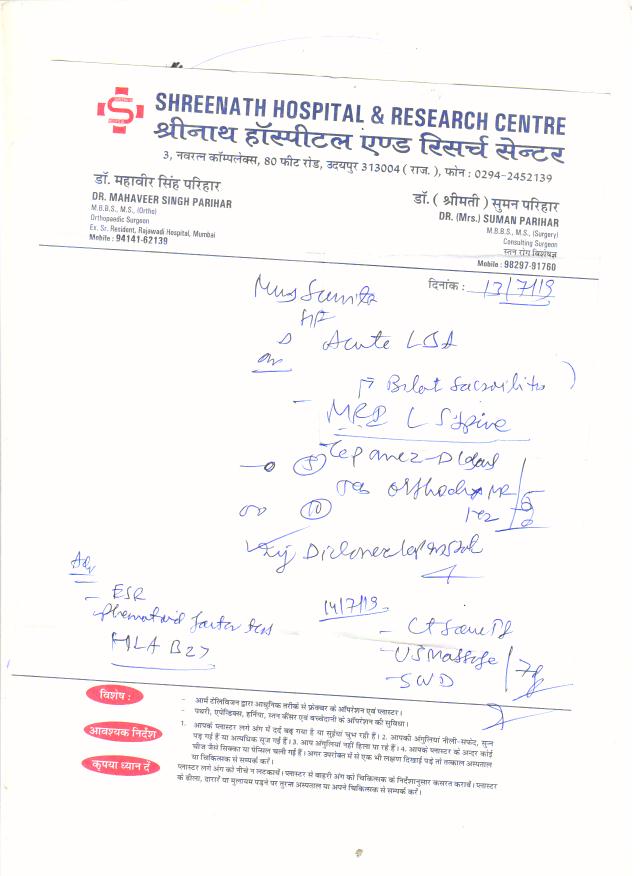 SHREENATH HOSPITAL & RESEARCH CENTRE
श्रीनाथ हॉस्पीटल एण्ड रिसर्च सेन्टर
3, नवरत्न कॉम्पलेक्स, 80 फीट रोड, उदयपुर 313004 ( राज. ), फोन : 0294-2452139
डॉ. महावीर सिंह परिहार
DR. MAHAVEER SINGH PARIHAR
M.B.B.S., M.S., (Ortho)
Orthopaedic Surgeon
Ex. Sr. Resident, Rajawadi Hospital, Mumbai
Mobile : 94141-62139
डॉ. ( श्रीमती ) सुमन परिहार
DR. (Mrs.) SUMAN PARIHAR
M.B.B.S., M.S., (Surgery)
Consulting Surgeon
स्तन रोग विशेषज्ञ
Mobile : 98297-91760
दिनांक : 13/7/19
Acute
Bilat Sacroilitis
MRI L Spine
10
Adv
- ESR
- Rhematoid factor test
HLA B27
14/7/19
- US Massage
- SWD
विशेष :
- आर्म टेलिविजन द्वारा आधुनिक तरीके से फ्रेक्चर के ऑपरेशन एवं प्लास्टर।
- पथरी, एपेन्डिक्स, हर्निया, स्तन कैंसर एवं बच्चेदानी के ऑपरेशन की सुविधा।
आवश्यक निर्देश
1. आपके प्लास्टर लगे अंग में दर्द बढ़ गया है या सुईयां चुभ रही हैं। 2. आपकी अंगुलियां नीली-सफेद, सुन्न
पड़ गई हैं या अत्यधिक सूज गई हैं। 3. आप अंगुलियां नहीं हिला पा रहे हैं। 4. आपके प्लास्टर के अन्दर कोई
चीज जैसे सिक्का या पेन्सिल चली गई हैं। अगर उपरोक्त में से एक भी लक्षण दिखाई पड़े तो तत्काल अस्पताल
या चिकित्सक से सम्पर्क करें।
कृपया ध्यान दें
प्लास्टर लगे अंग को नीचे न लटकायें। प्लास्टर से बाहरी अंग को चिकित्सक के निर्देशानुसार कसरत करावें। प्लास्टर
के ढीला, दारारें या मुलायम पड़ने पर तुरन्त अस्पताल या अपने चिकित्सक से सम्पर्क करें।